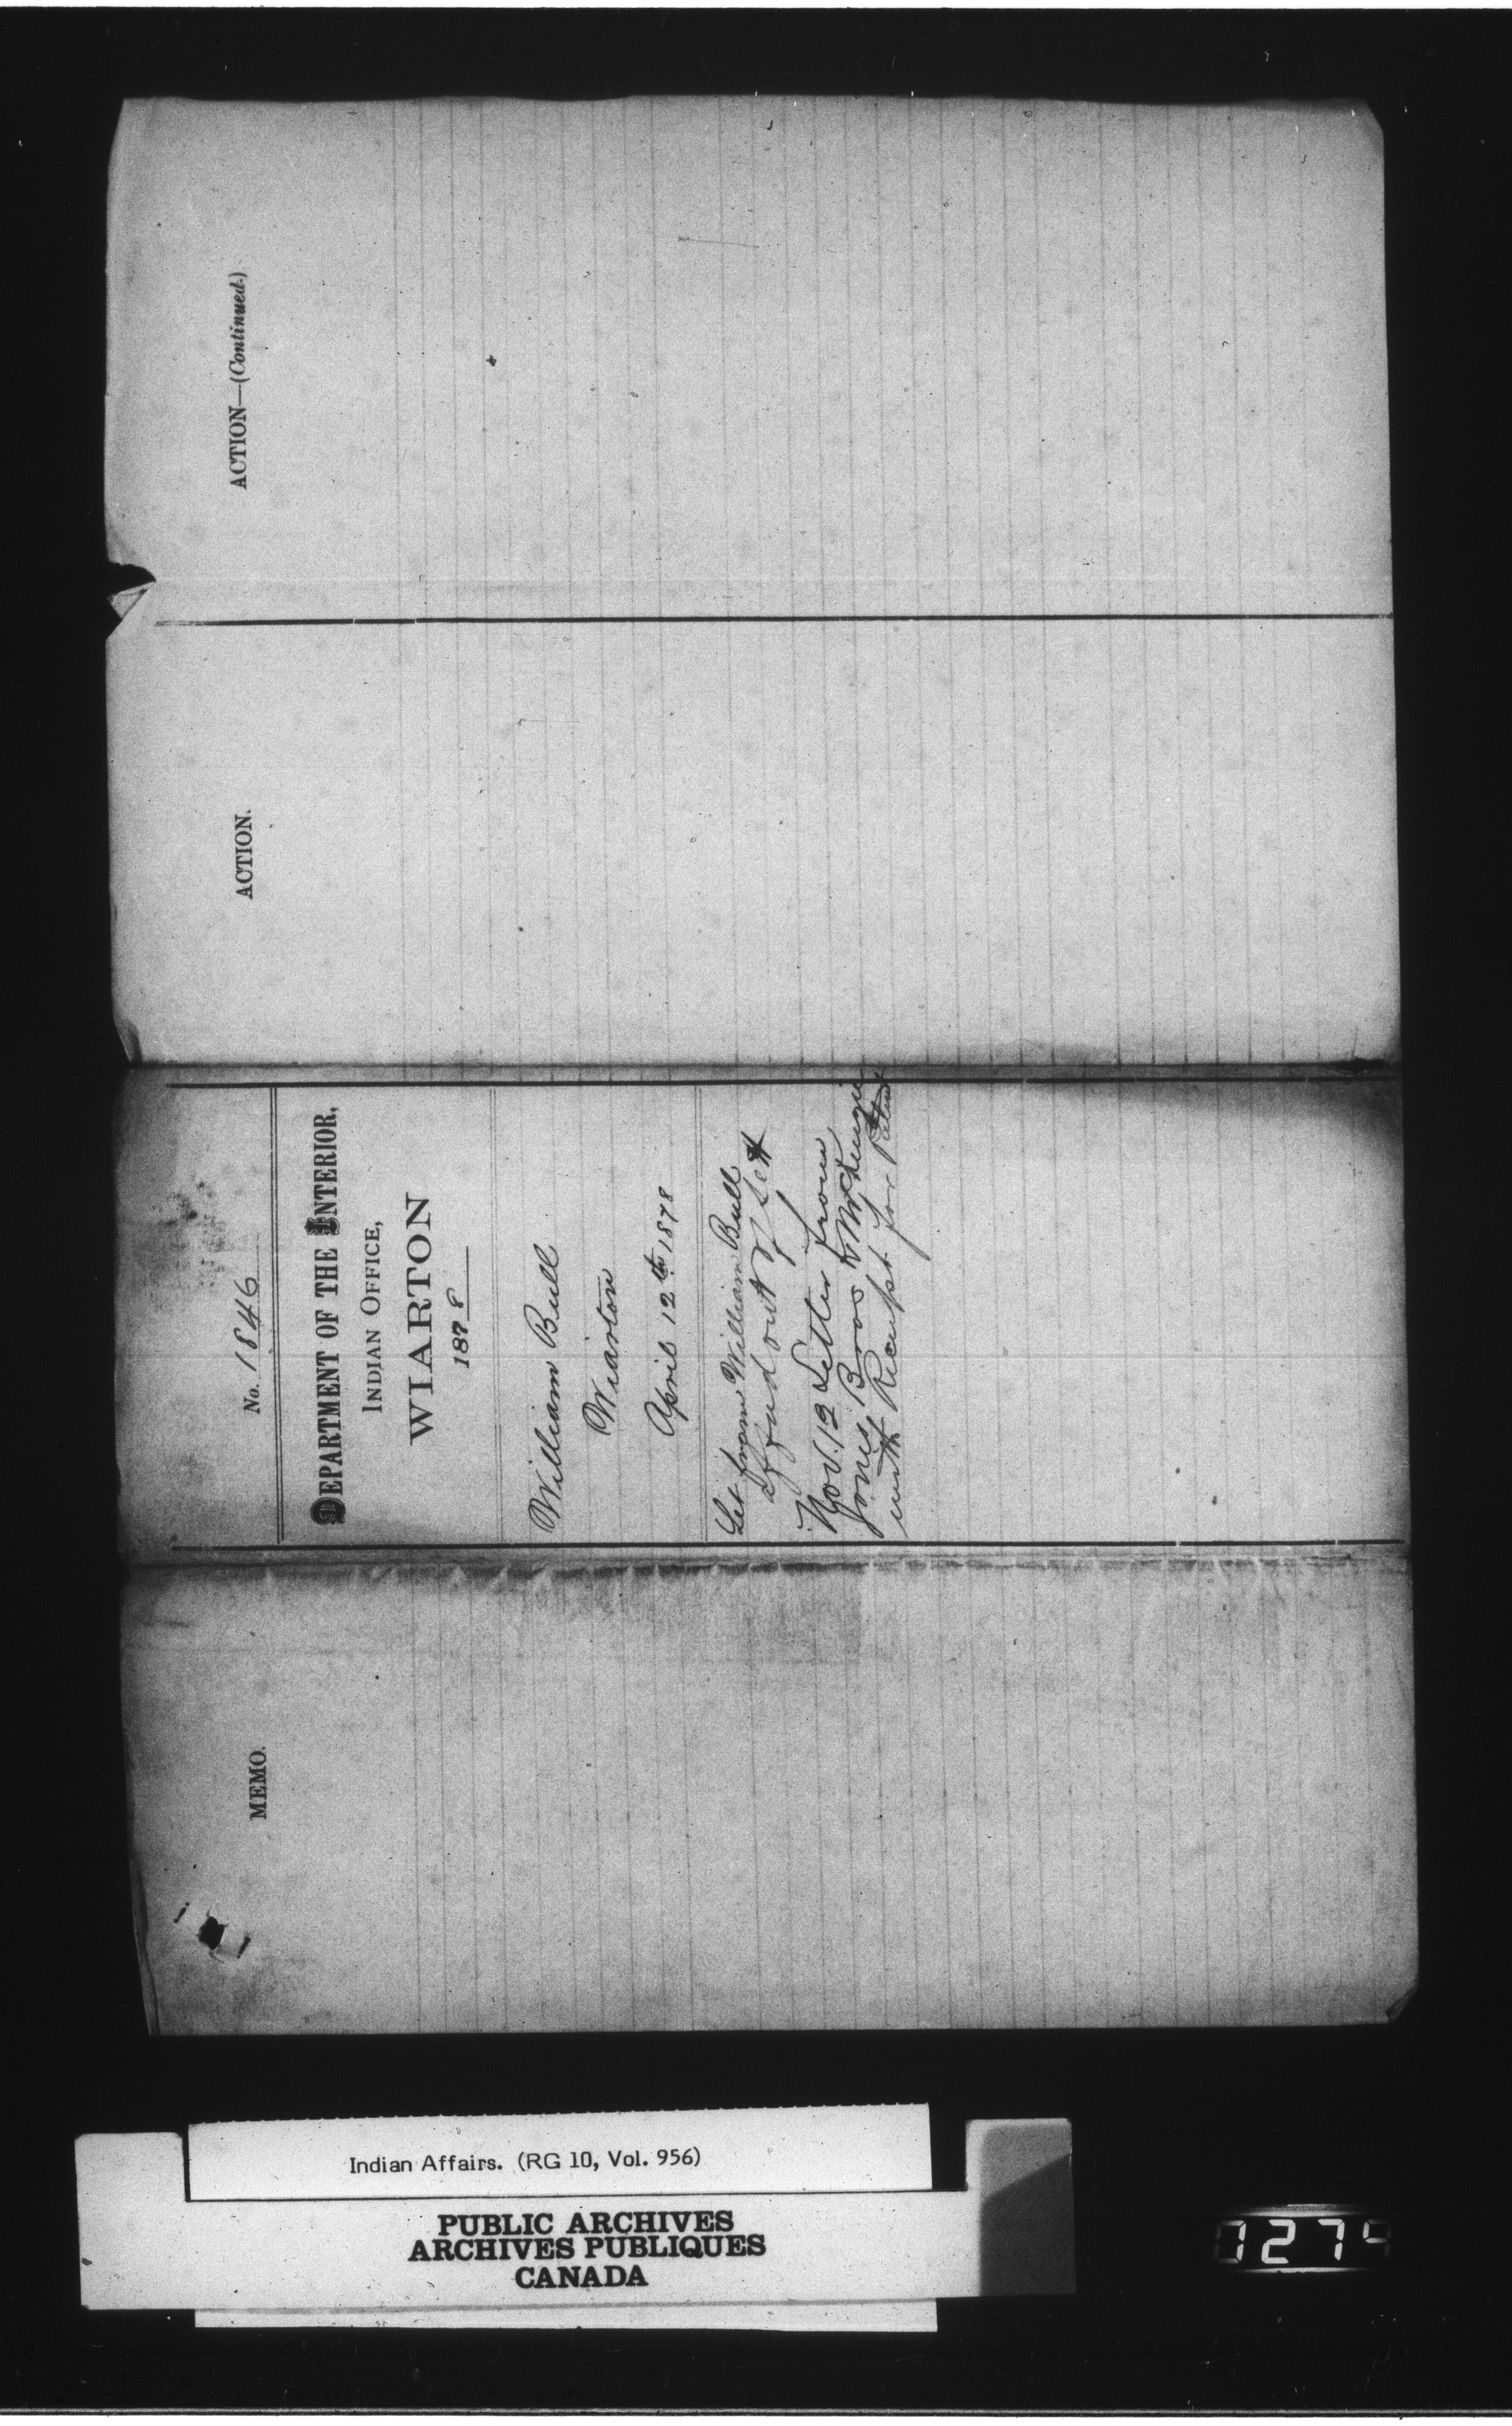 MEMO.
No. 1846
DEPARTMENT OF THE INTERIOR,
INDIAN OFFICE,
WIARTON
1878
William Bull
Wiarton
April 12th 1878
Let from William Bull
out of
Nov. 12 Letter from
Jones Bros & McKenzie
with Receipt for Patent
ACTION.
ACTION—(Continued.)
Indian Affairs. (RG 10, Vol. 956)
PUBLIC ARCHIVES
ARCHIVES PUBLIQUES
CANADA